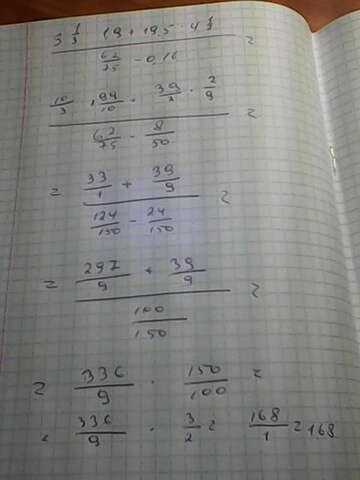 3 1/3 · 1,9 + 19,5 : 4 1/2
62/75 - 0,16 =
10/3 · 99/10 + 39/2 · 2/9
62/75 - 8/50 =
= 33/1 + 39/9
124/150 - 24/150 =
= 297/9 + 39/9
100/150 =
= 336/9 · 150/100 =
= 336/9 · 3/2 = 168/1 = 168